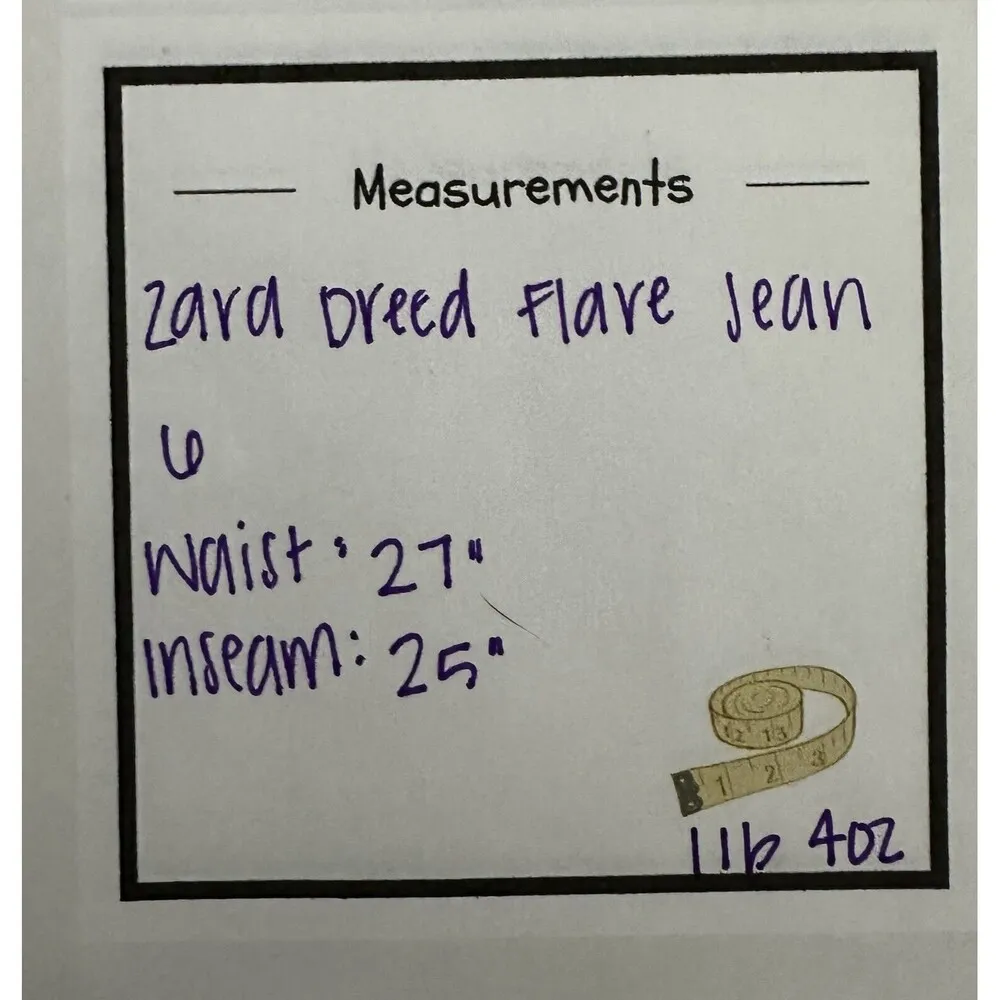 Measurements
Zara Dreed Flare Jean
6
Waist: 27"
Inseam: 25"
12 13
1 2 3
1lb 4oz